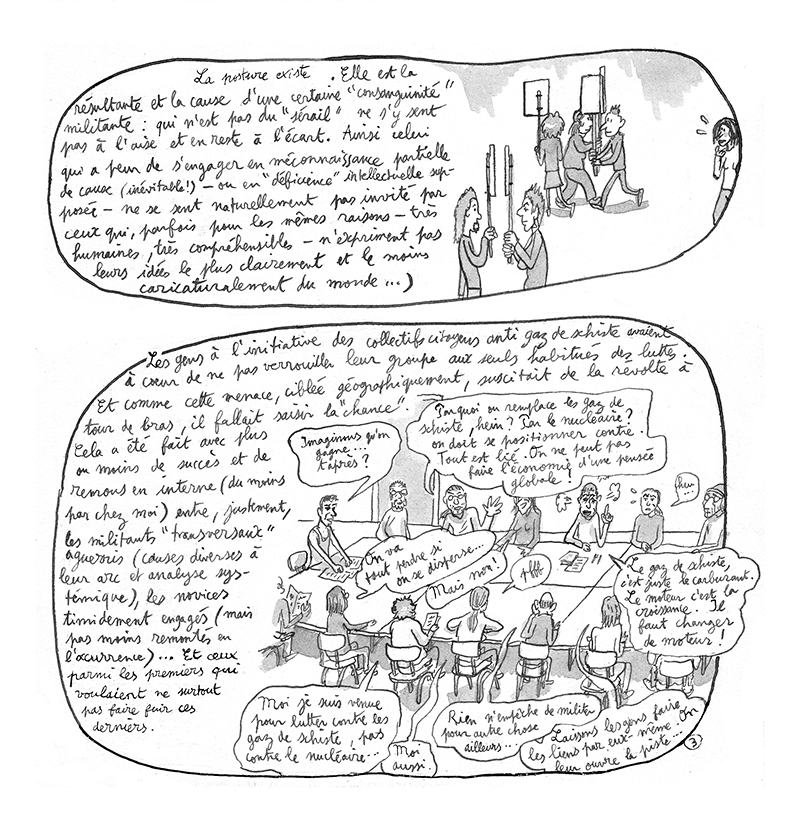 La posture existe . Elle est la
résultante et la cause d'une certaine "consanguinité"
militante : qui n'est pas du "sérail" ne s'y sent
pas à l'aise et en reste à l'écart. Ainsi celui
qui a peur de s'engager en méconnaissance partielle
de cause (inévitable!) – ou en "déficience" intellectuelle sup-
posée – ne se sent naturellement pas invité par
ceux qui, parfois pour les mêmes raisons – très
humaines, très compréhensibles – n'expriment pas
leurs idées le plus clairement et le moins
caricaturalement du monde ...)
Les gens à l'initiative des collectifs citoyens anti gaz de schiste avaient
à cœur de ne pas verrouiller leur groupe aux seuls habitués des luttes.
Et comme cette menace, ciblée géographiquement, suscitait de la révolte à
tour de bras, il fallait saisir la "chance".
Cela a été fait avec plus
ou moins de succès et de
remous en interne (du moins
par chez moi) entre, justement,
les militants "transversaux"
aguerris (causes diverses à
leur arc et analyse sys-
témique), les novices
timidement engagés (mais
pas moins remontés en
l'occurrence)... Et ceux
parmi les premiers qui
voulaient ne surtout
pas faire fuir ces
derniers.
Imaginons qu'on
gagne...
t'après ?
Par quoi on remplace les gaz de
schiste, hein ? Par le nucléaire ?
on doit se positionner contre.
Tout est lié. On ne peut pas
faire l'économie d'une pensée
globale !
heu...
On va
tout perdre si
on se disperse...
Mais non !
pfff
Le gaz de schiste,
c'est juste le carburant.
Le moteur c'est la
croissance. Il
faut changer
de moteur !
Moi je suis venue
pour lutter contre les
gaz de schiste, pas
contre le nucléaire...
Moi
aussi.
Rien n'empêche de militer
pour autre chose
ailleurs...
Laissons les gens faire
les liens par eux même. On
leur ouvre la piste...
3